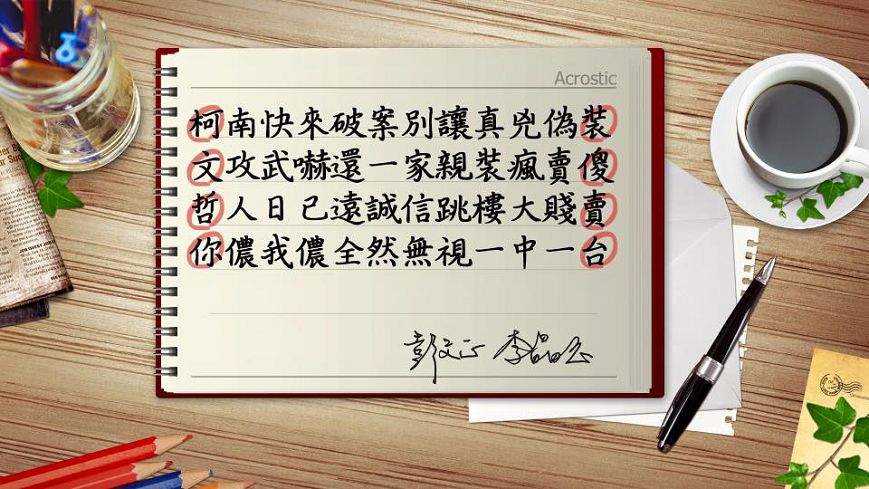 Acrostic
柯南快來破案別讓真兇偽裝
文攻武嚇還一家親裝瘋賣傻
哲人日已遠誠信跳樓大賤賣
你儂我儂全然無視一中一台
彭文正 李晶玉